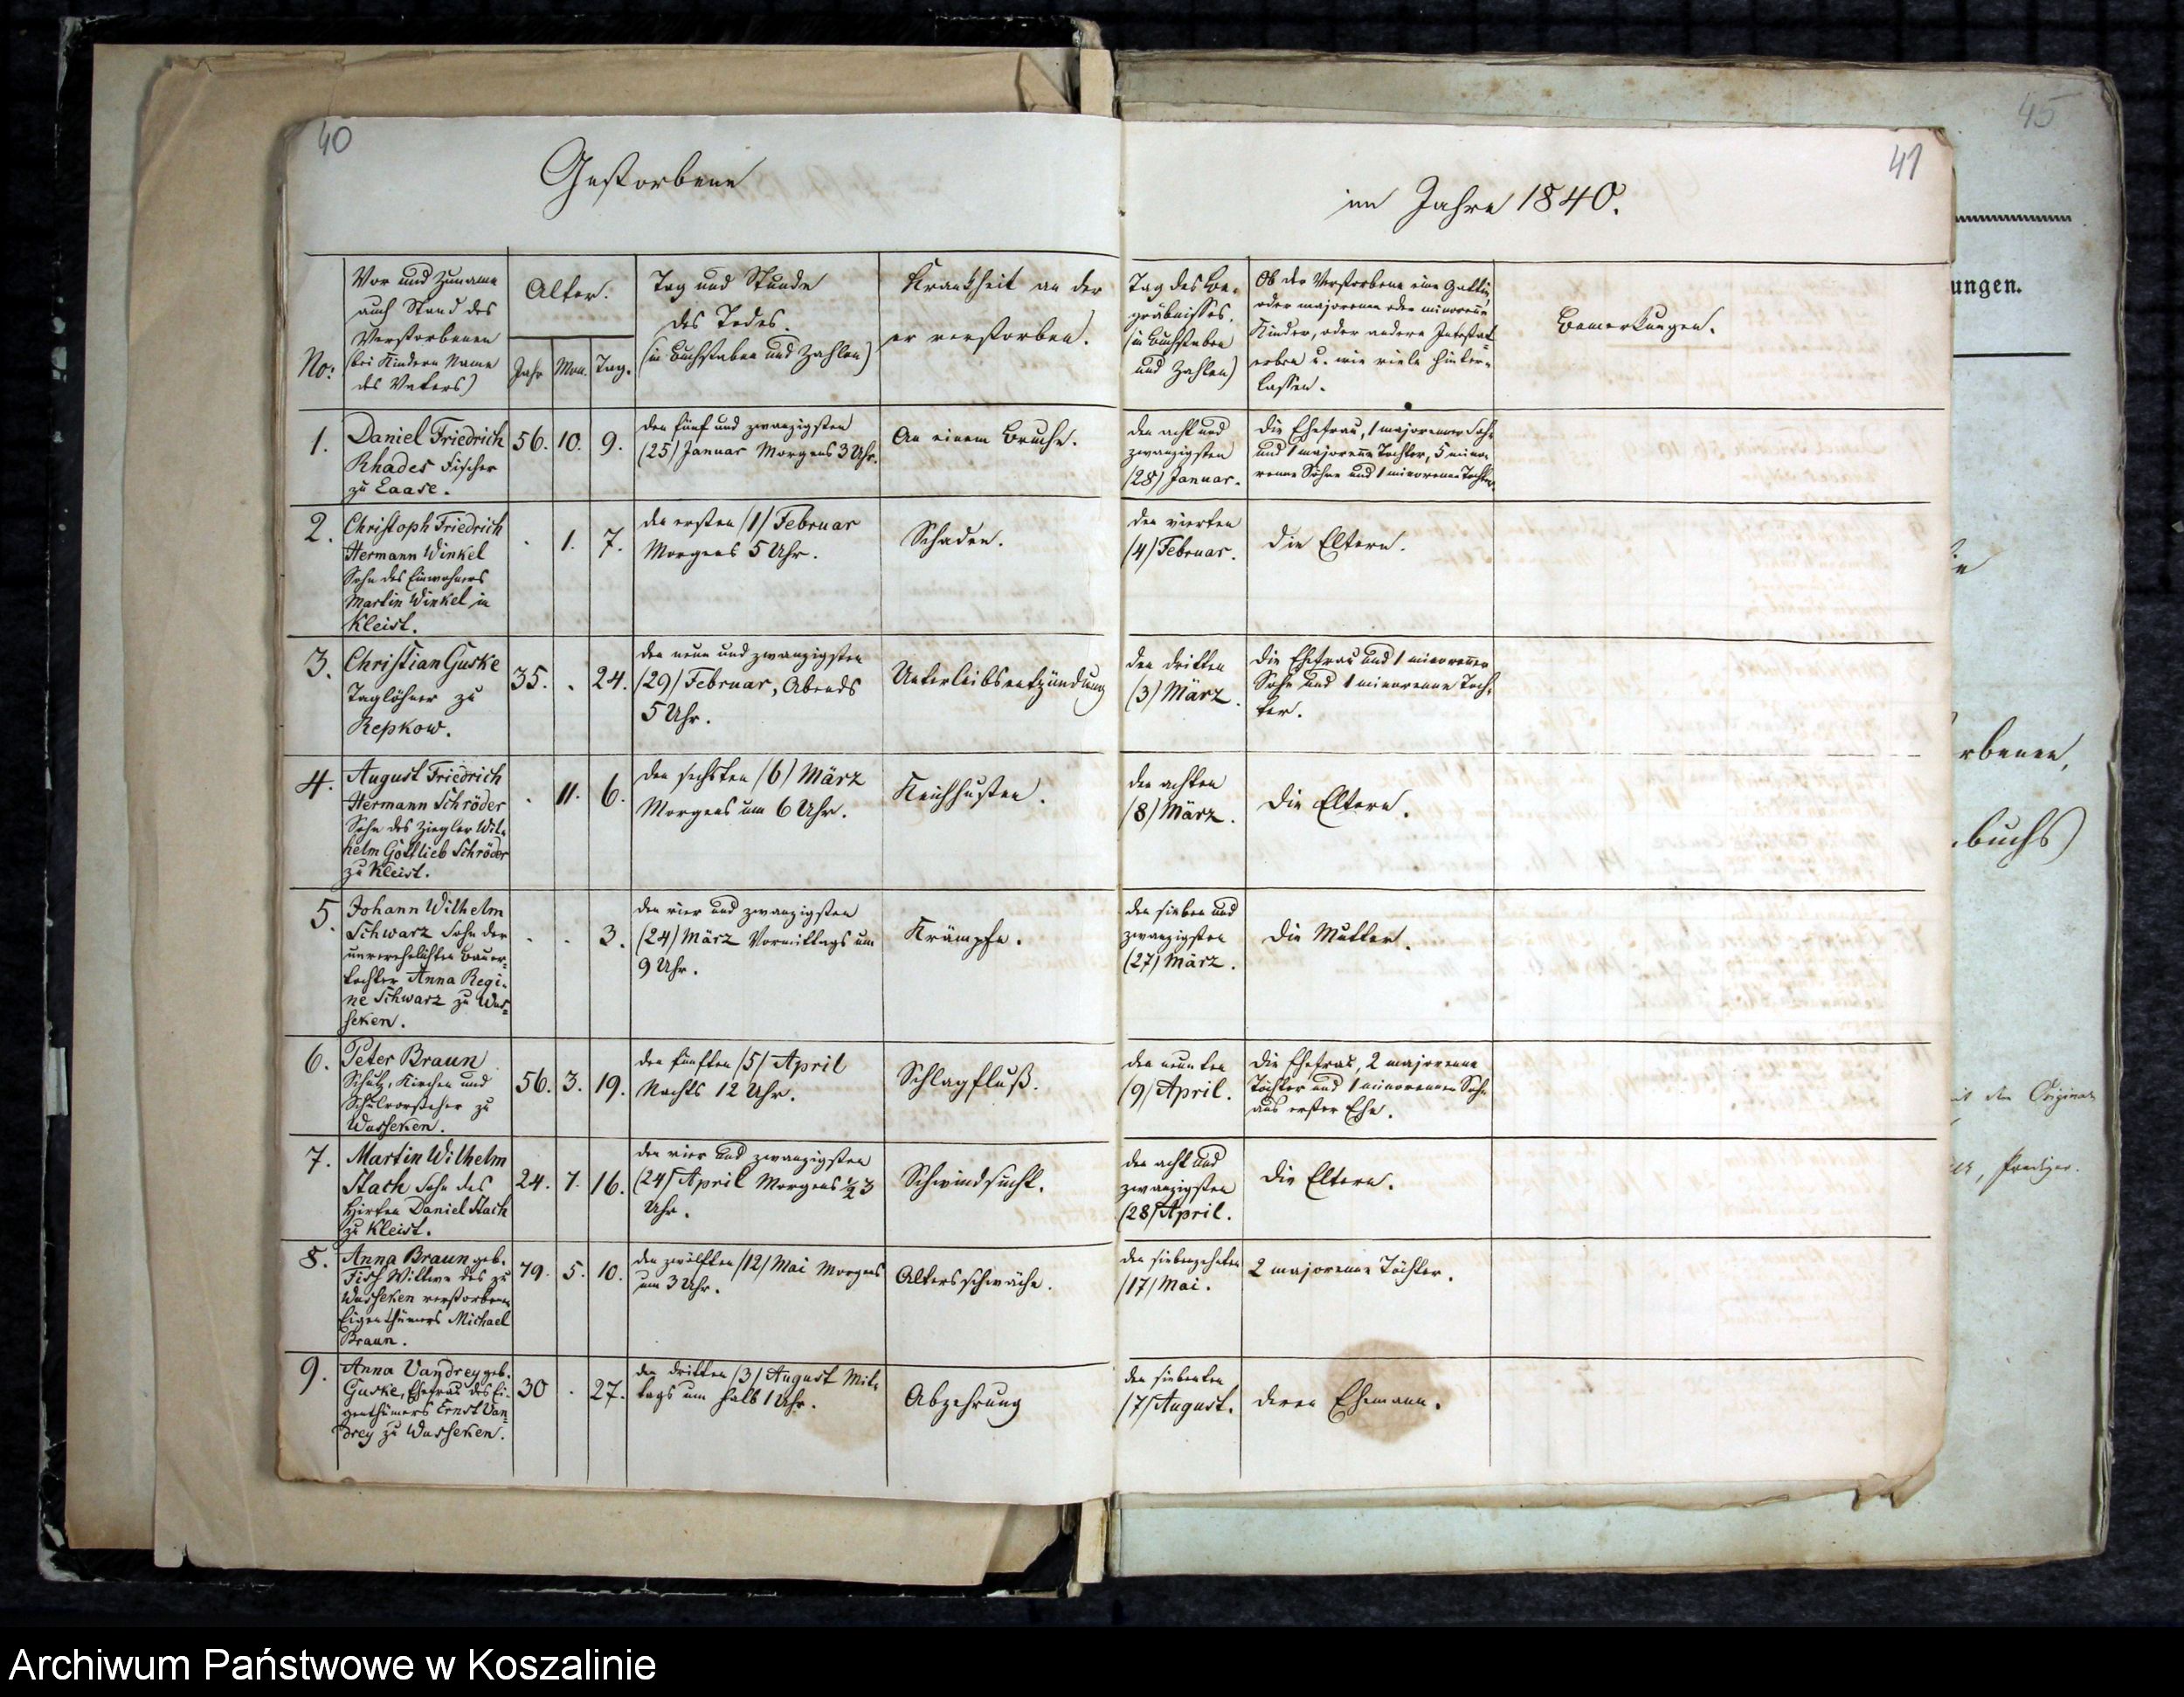 40
Gestorbene
No:
Vor und Zuname
auch Stand des
Verstorbenen
(bei Kindern Name
des Vaters)
Alter.
Jahr
Mon.
Tag.
Tag und Stunde
des Todes.
(in Buchstaben und Zahlen)
Krankheit an der
er verstorben.
1.
Daniel Friedrich
Rhades Fischer
zu Laase.
56.
10.
9.
den fünf und zwanzigsten
(25) Januar Morgens 3 Uhr.
An einem Bruche.
2.
Christoph Friedrich
Hermann Winkel
Sohn des Einwohners
Martin Winkel in
Kleist.
.
1.
7.
den ersten (1) Februar
Morgens 5 Uhr.
Schaden.
3.
Christian Guske
Taglöhner zu
Repkow.
35.
.
24.
den neun und zwanzigsten
(29) Februar, Abends
5 Uhr.
Unterleibsentzündung
4.
August Friedrich
Hermann Schröder
Sohn des Ziegler Wil-
helm Gottlieb Schröder
zu Kleist.
.
11.
6.
den sechsten (6) März
Morgens um 6 Uhr.
Keichhusten.
5.
Johann Wilhelm
Schwarz Sohn der
unverehelichten Bauer-
tochter Anna Regi-
ne Schwarz zu Was-
seken.
.
.
3.
den vier und zwanzigsten
(24) März Vormittags um
9 Uhr.
Krämpfe.
6.
Peter Braun
Schulz, Kirchen und
Schulvorsteher zu
Wusseken.
56.
3.
19.
den fünften (5) April
Nachts 12 Uhr.
Schlagfluß.
7.
Martin Wilhelm
Stach Sohn des
Hirten Daniel Stach
zu Kleist.
24.
7.
16.
den vier und zwanzigsten
(24) April Morgens ½3
Uhr.
Schwindsucht.
8.
Anna Braun geb.
Fisch Wittwe des zu
Wusseken verstorbenen
Eigenthümers Michael
Braun.
79.
5.
10.
den zwölften (12) Mai Morgens
um 3 Uhr.
Altersschwäche.
9.
Anna Vandrey geb.
Guske, Ehefrau des Ei-
genthümers Ernst Van-
drey zu Wusseken.
30
.
27.
den dritten (3) August Mit-
tags um halb 1 Uhr.
Abzehrung
41
im Jahre 1840.
Tag des Be-
gräbnisses.
(in Buchstaben
und Zahlen)
Ob der Verstorbene eine Gattin,
oder majorenne oder minorenne
Kinder, oder andere Intestat-
erben u. wie viele hinter-
lassen.
Bemerkungen.
den acht und
zwanzigsten
(28) Januar.
Die Ehefrau, 1 majorenner Sohn
und 1 majorenne Tochter, 5 mino-
renne Söhne und 1 minorenne Tochter.
den vierten
(4) Februar.
Die Eltern.
den dritten
(3) März.
Die Ehefrau und 1 minorenner
Sohn und 1 minorenne Toch-
ter.
den achten
(8) März.
Die Eltern.
den sieben und
zwanzigsten
(27) März.
Die Mutter.
den neunten
(9) April.
Die Ehefrau, 2 majorenne
Töchter und 1 minorenner Sohn
aus erster Ehe.
den acht und
zwanzigsten
(28) April.
Die Eltern.
den siebenzehnten
(17) Mai.
2 majorenne Töchter.
den siebenten
(7) August.
Deren Ehemann.
45
ungen.
rbenen,
buchs)
Original
Prediger.
Archiwum Państwowe w Koszalinie